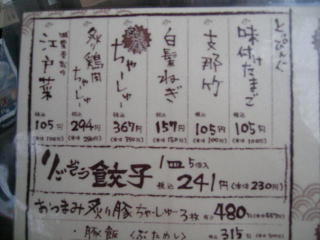 とっぴんぐ
味付けたまご
税込
105円
(本体100円)
支那竹
税込
105円
(本体100円)
白髪ねぎ
税込
157円
(本体150円)
ちゃーしゅー
税込
367円
(本体350円)
炙り鶏肉ちゃーしゅー
税込
294円
(本体280円)
江戸菜
税込
105円
(本体100円)
餃子
1皿 5個入
税込 241円 (本体230円)
おつまみ炙り豚ちゃーしゅー3枚 税込 480円
・豚飯(ぶためし) 税込 315円